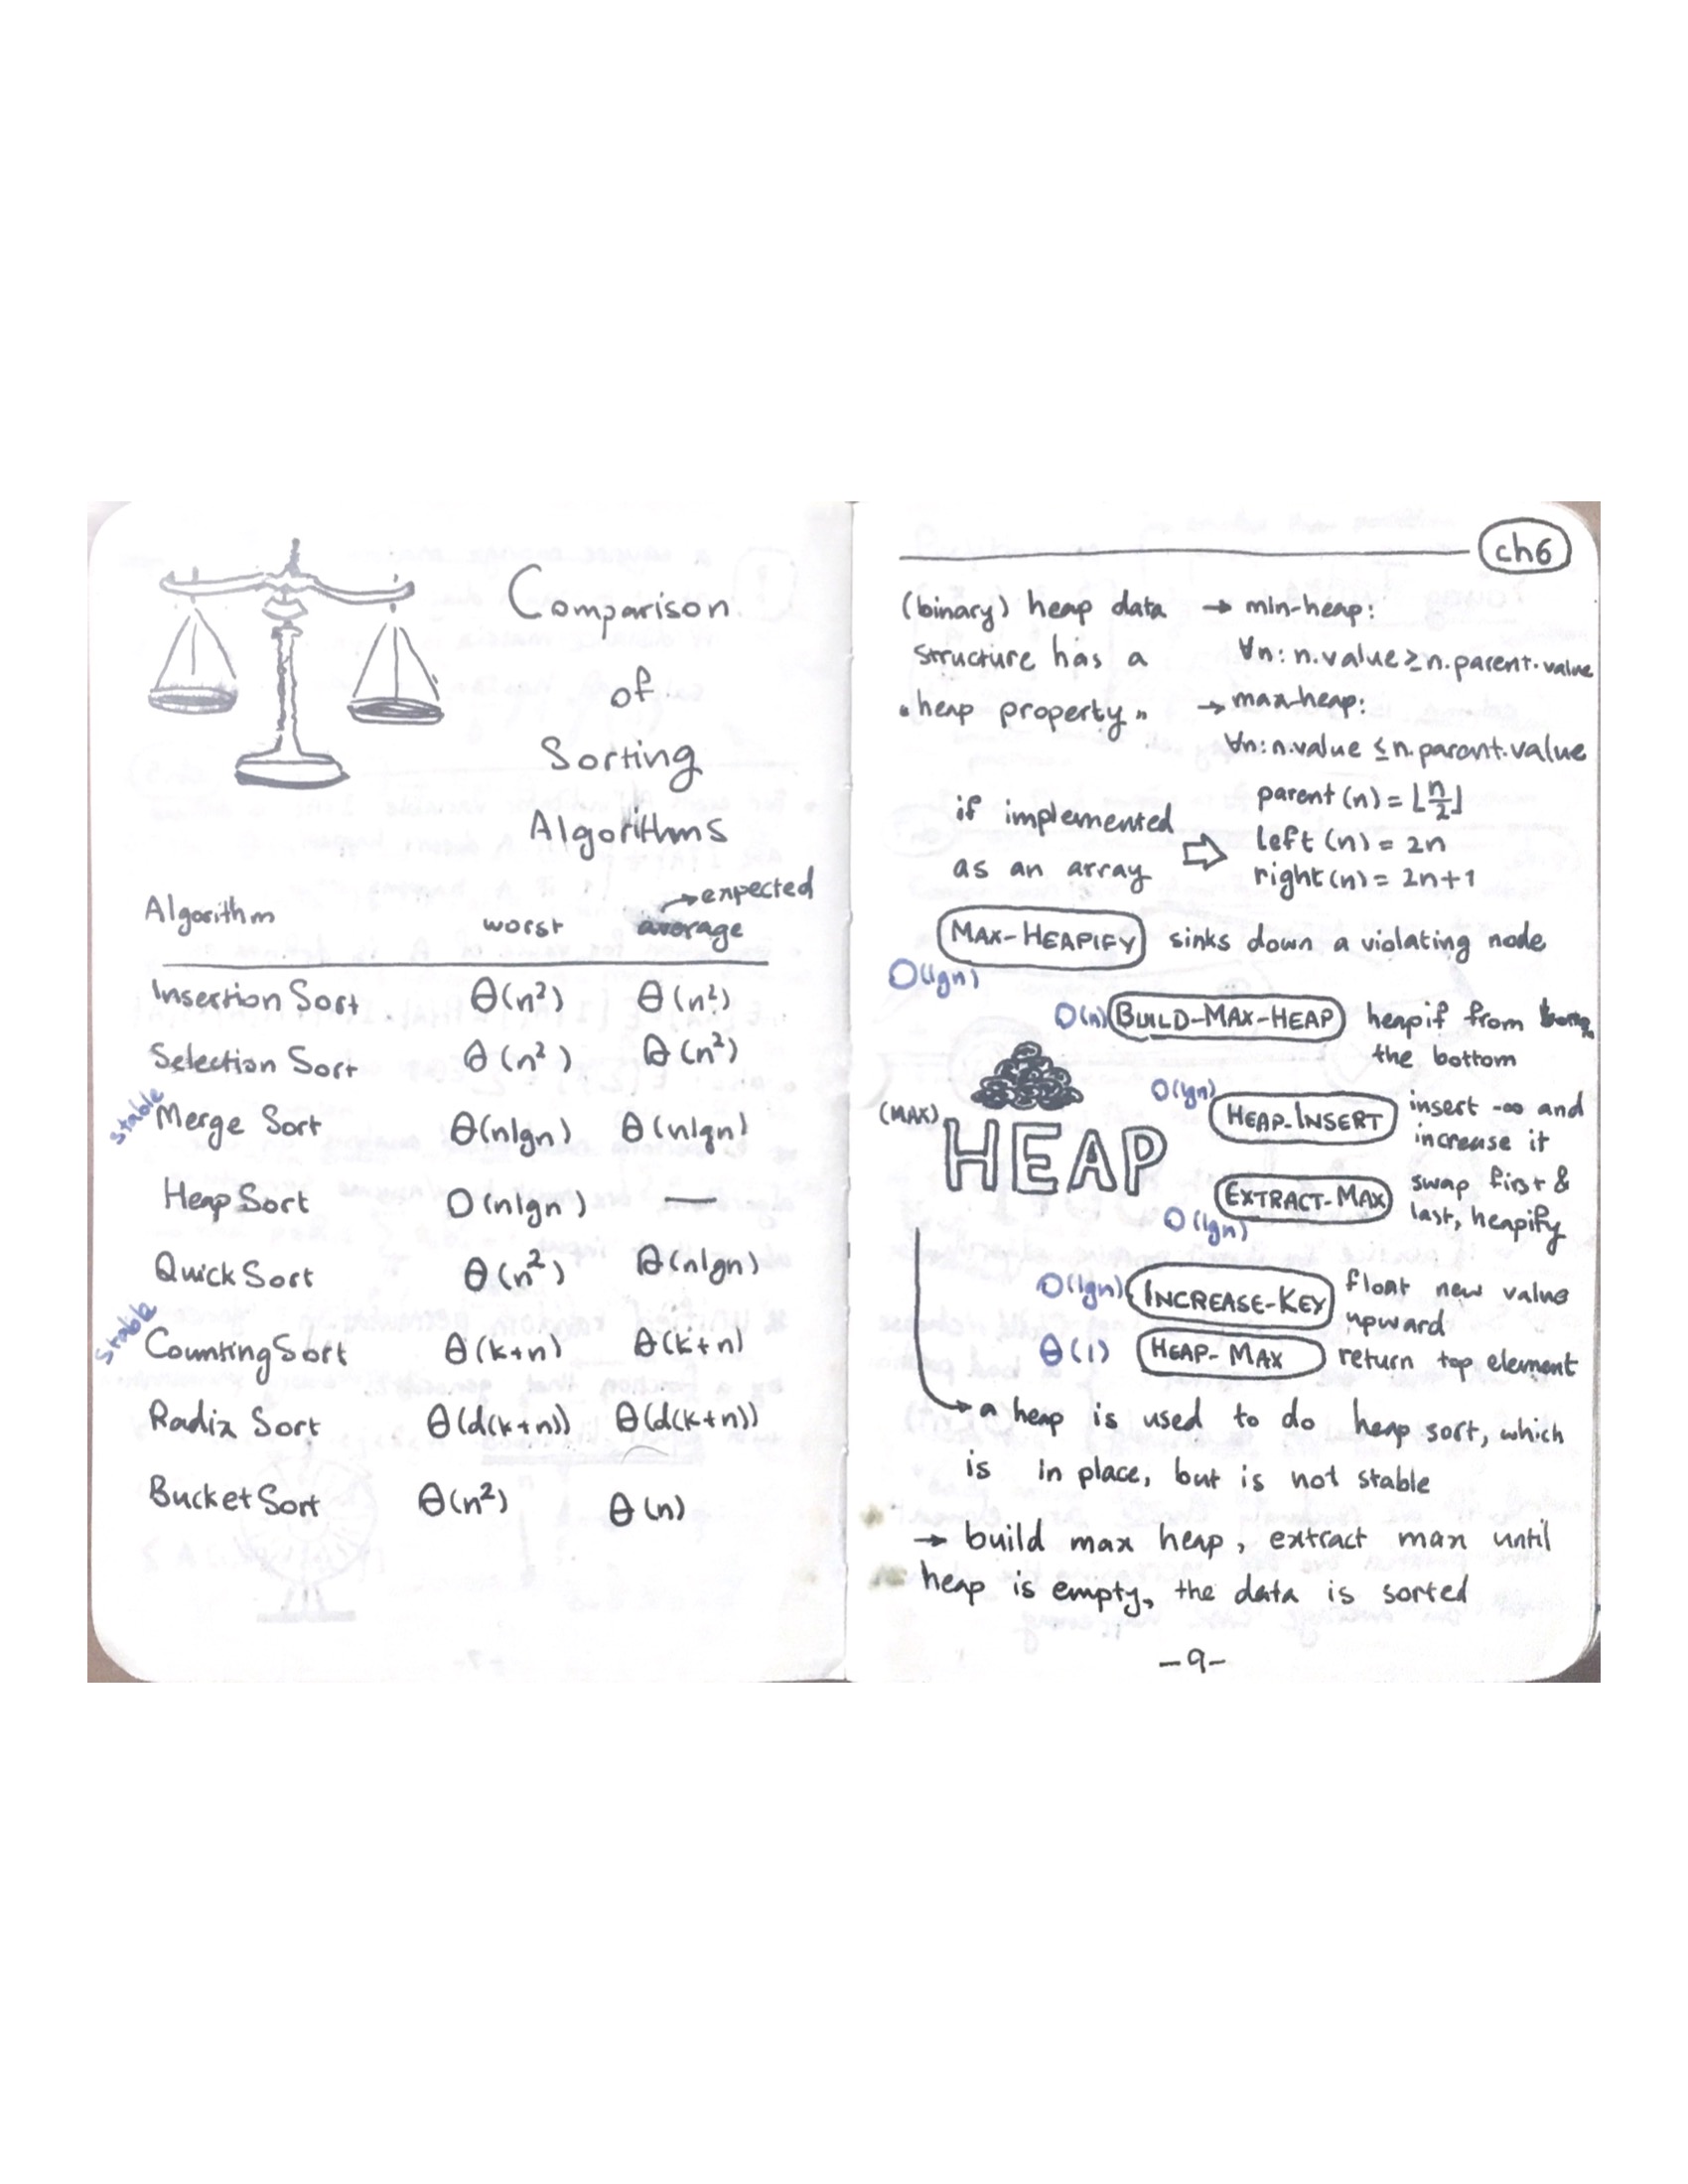 Comparison
of
Sorting
Algorithms
Algorithm worst average → expected
Insertion Sort Θ(n²) Θ(n²)
Selection Sort Θ(n²) Θ(n²)
stable Merge Sort Θ(nlgn) Θ(nlgn)
Heap Sort O(nlgn) —
Quick Sort Θ(n²) Θ(nlgn)
stable Counting Sort Θ(k+n) Θ(k+n)
Radix Sort Θ(d(k+n)) Θ(d(k+n))
Bucket Sort Θ(n²) Θ(n)
ch6
(binary) heap data
structure has a
"heap property"
→ min-heap:
∀n: n.value ≥ n.parent.value
→ max-heap:
∀n: n.value ≤ n.parent.value
if implemented
as an array
⇒ parent(n) = ⌊n/2⌋
left(n) = 2n
right(n) = 2n+1
MAX-HEAPIFY sinks down a violating node
O(lgn)
O(n) BUILD-MAX-HEAP heapif from
the bottom
(MAX) HEAP
O(lgn) HEAP-INSERT insert -∞ and
increase it
EXTRACT-MAX swap first &
O(lgn) last, heapify
O(lgn) INCREASE-KEY float new value
upward
Θ(1) HEAP-MAX return top element
→ a heap is used to do heap sort, which
is in place, but is not stable
→ build max heap, extract max until
heap is empty, the data is sorted
-9-